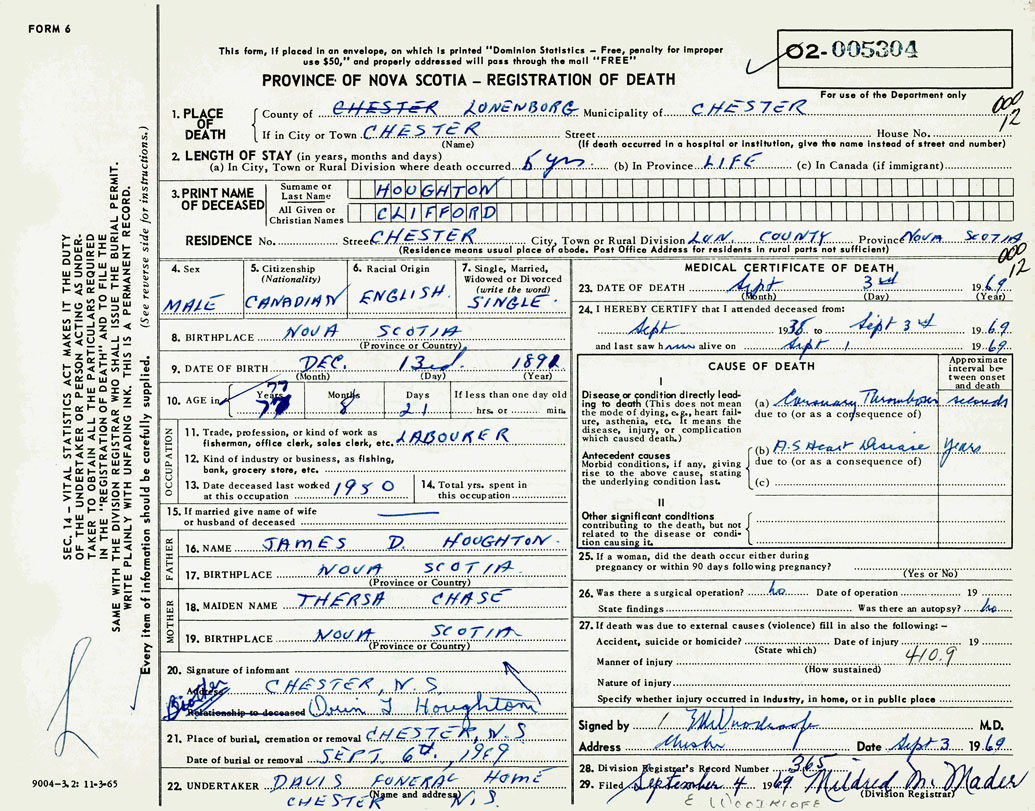 FORM 6
This form, if placed in an envelope, on which is printed "Dominion Statistics – Free, penalty for improper
use $50," and properly addressed will pass through the mail "FREE"
02-005304
For use of the Department only
PROVINCE OF NOVA SCOTIA – REGISTRATION OF DEATH
000
12
1. PLACE OF DEATH
County of CHESTER LUNENBORG Municipality of CHESTER
If in City or Town CHESTER Street House No.
(Name) (If death occurred in a hospital or institution, give the name instead of street and number)
2. LENGTH OF STAY (in years, months and days)
(a) In City, Town or Rural Division where death occurred 5 yrs. (b) In Province LIFE (c) In Canada (if immigrant)
3. PRINT NAME OF DECEASED
Surname or Last Name HOUGHTON
All Given or Christian Names CLIFFORD
RESIDENCE No. Street CHESTER City, Town or Rural Division LUN. COUNTY Province NOVA SCOTIA
(Residence means usual place of abode. Post Office Address for residents in rural parts not sufficient)
000
12
4. Sex MALE
5. Citizenship (Nationality) CANADIAN
6. Racial Origin ENGLISH
7. Single, Married, Widowed or Divorced (write the word) SINGLE
8. BIRTHPLACE NOVA SCOTIA
(Province or Country)
9. DATE OF BIRTH DEC. 13 1892
(Month) (Day) (Year)
10. AGE in Years 77 Months 8 Days 21 If less than one day old hrs. or min.
77
OCCUPATION
11. Trade, profession, or kind of work as fisherman, office clerk, sales clerk, etc. LABOURER
12. Kind of industry or business, as fishing, bank, grocery store, etc.
13. Date deceased last worked at this occupation 1950
14. Total yrs. spent in this occupation
15. If married give name of wife or husband of deceased
FATHER
16. NAME JAMES D. HOUGHTON
17. BIRTHPLACE NOVA SCOTIA
(Province or Country)
MOTHER
18. MAIDEN NAME THERSA CHASE
19. BIRTHPLACE NOVA SCOTIA
(Province or Country)
20. Signature of informant
Address CHESTER, N.S.
Brother
Relationship to deceased Orin T Houghton
21. Place of burial, cremation or removal CHESTER, N.S
Date of burial or removal SEPT. 6th, 1969
22. UNDERTAKER DAVIS FUNERAL HOME
(Name and address)
CHESTER N.S.
MEDICAL CERTIFICATE OF DEATH
23. DATE OF DEATH Sept 3rd 1969
(Month) (Day) (Year)
24. I HEREBY CERTIFY that I attended deceased from:
Sept 1938 to Sept 3rd 1969
and last saw him alive on Sept 1 1969
CAUSE OF DEATH
Approximate interval between onset and death
I
Disease or condition directly leading to death (This does not mean the mode of dying, e.g., heart failure, asthenia, etc. It means the disease, injury, or complication which caused death.)
(a) Coronary Thrombosis seconds
due to (or as a consequence of)
Antecedent causes
Morbid conditions, if any, giving rise to the above cause, stating the underlying condition last.
(b) A.S Heart Disease years
due to (or as a consequence of)
(c)
II
Other significant conditions contributing to the death, but not related to the disease or condition causing it.
25. If a woman, did the death occur either during pregnancy or within 90 days following pregnancy?
(Yes or No)
26. Was there a surgical operation? no Date of operation 19
State findings Was there an autopsy? no
27. If death was due to external causes (violence) fill in also the following:–
Accident, suicide or homicide? Date of injury 19
(State which) 410.9
Manner of injury
(How sustained)
Nature of injury
Specify whether injury occurred in Industry, in home, or in public place
Signed by M.D.
Address Chester Date Sept 3 1969
28. Division Registrar's Record Number 365
29. Filed September 4 1969 Mildred M. Mader
(Division Registrar)
SEC. 14 – VITAL STATISTICS ACT MAKES IT THE DUTY
OF THE UNDERTAKER OR PERSON ACTING AS UNDER-
TAKER TO OBTAIN ALL THE PARTICULARS REQUIRED
IN THE "REGISTRATION OF DEATH" AND TO FILE THE
SAME WITH THE DIVISION REGISTRAR WHO SHALL ISSUE THE BURIAL PERMIT.
WRITE PLAINLY WITH UNFADING INK. THIS IS A PERMANENT RECORD.
Every item of information should be carefully supplied. (See reverse side for instructions.)
9004–3.2: 11-3-65